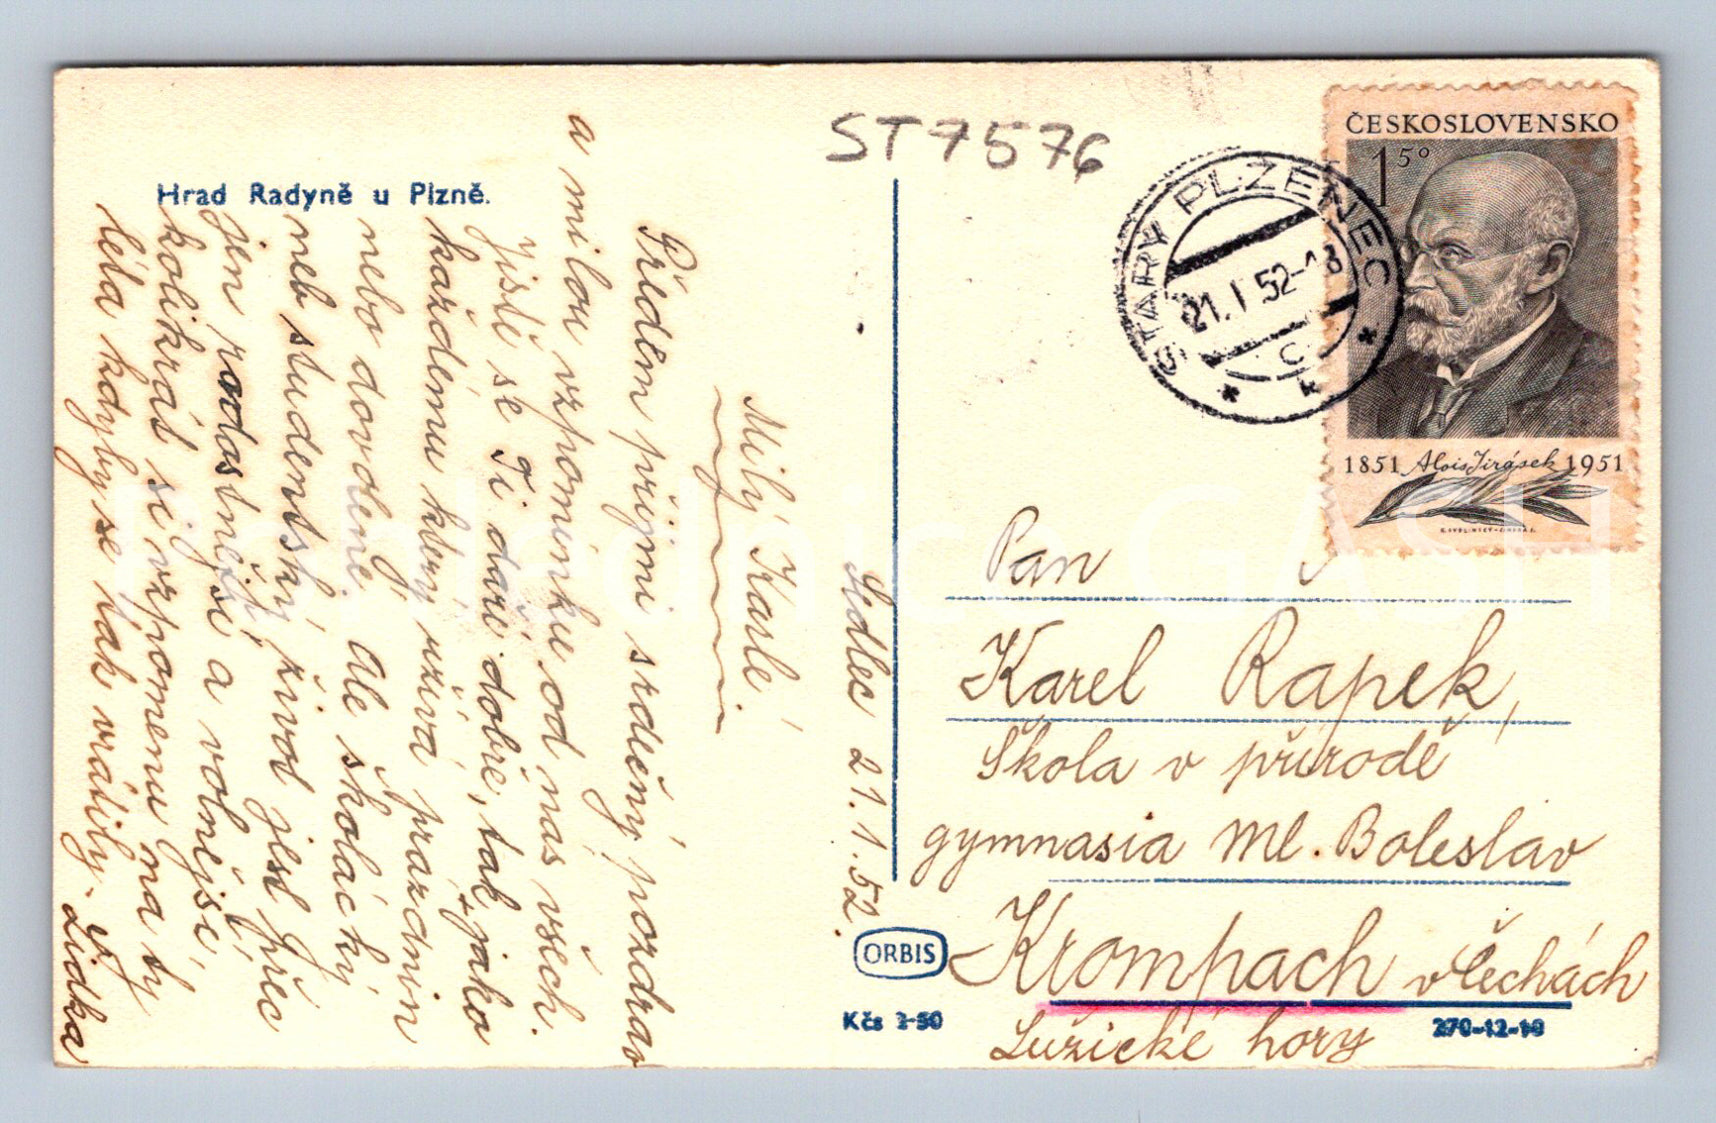 Hrad Radyně u Plzně.
ST7576
STARÝ PLZENEC
21. I 52-18
C
ČESKOSLOVENSKO
1 50
1851 Alois Jirásek 1951
Sedlec 21.1.52.
Milý Karle.
Předem přijmi srdečný pozdrav
a milou vzpomínku od nás všech.
Jistě se Ti daří dobře, tak jako
každému který užívá prázdnin
nebo dovolené. Ale školácký
neb studentský život jest přec
jen radostnější a volnější,
kolikráš si vzpomenu na ty
léta kdyby se tak vrátily.
Lidka
Pan
Karel Rapek,
Škola v přírodě
gymnasia Ml. Boleslav
Krompach v Čechách
Lužické hory
ORBIS
Kčs 1·50
270-12-10
GASH